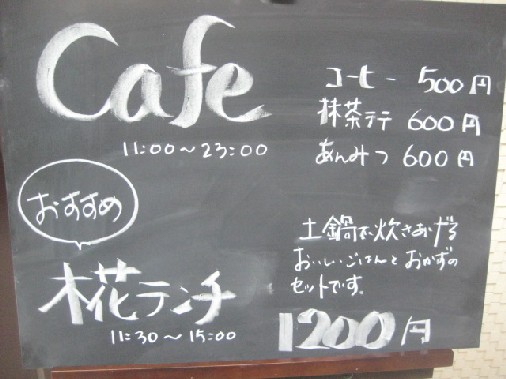 Cafe
11:00～23:00
コーヒー 500円
抹茶ラテ 600円
あんみつ 600円
おすすめ
木花ランチ
11:30～15:00
土鍋で炊きあげる
おいしいごはんとおかずの
セットです。
1200円